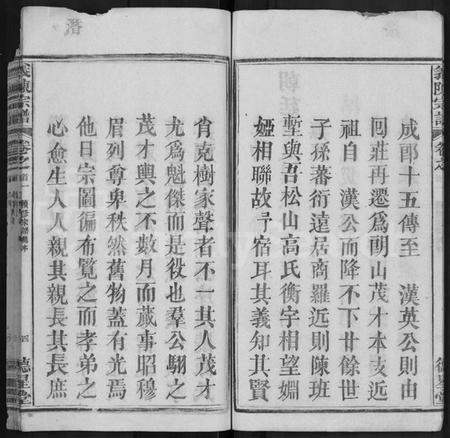 義陳宗譜
卷之首
成郡十五傳至　漢英公則由
囘莊再遷爲朝山茂才本支近
祖自　漢公而降不下廿餘世
子孫蕃衍遠居商羅近則陳班
塹與吾松山高氏衡宇相望婣
婭相聯故予宿耳其義知其賢
德星堂
肯克樹家聲者不一其人茂才
尤爲魁傑而是役也羣公騆之
茂才輿之不數月而蕆事昭穆
眉列尊卑秩然舊物蓋有光焉
他日宗圖徧布覽之而孝弟之
心愈生人人親其親長其長庶
義陳宗譜
卷之首
四
德星堂